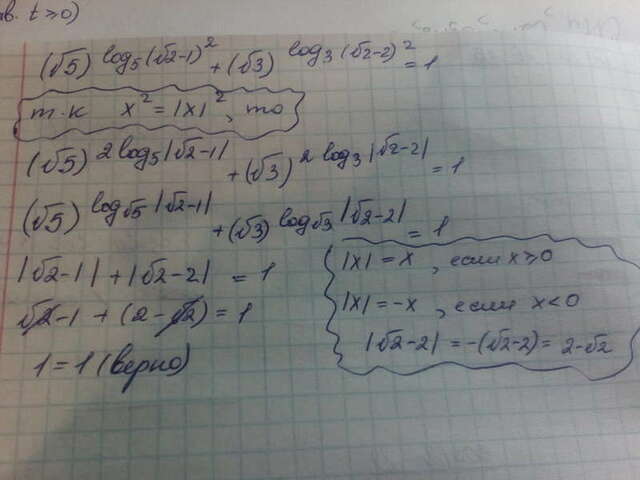 ав. t ≥ 0)
(√5)^log₅(√2-1)² + (√3)^log₃(√2-2)² = 1
т.к x² = |x|², то
(√5)^2log₅|√2-1| + (√3)^2log₃|√2-2| = 1
(√5)^log_√5|√2-1| + (√3)^log_√3|√2-2| = 1
|√2-1| + |√2-2| = 1
√2-1 + (2-√2) = 1
1 = 1 (верно)
|x| = x, если x ≥ 0
|x| = -x, если x < 0
|√2-2| = -(√2-2) = 2-√2